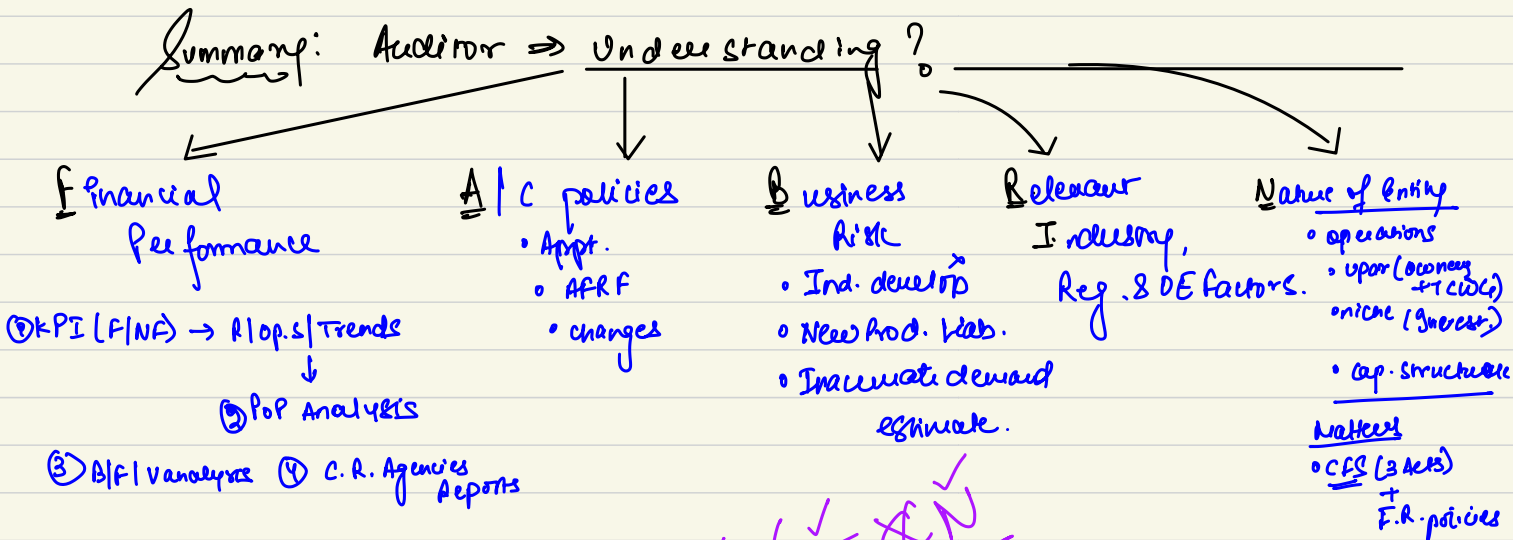 Summary: Auditor ⇒ Understanding?
Financial
Performance
① KPI (F/NF) → R/op.s/Trends
↓
② PoP Analysis
③ B/F/V analysis ④ C.R. Agencies
Reports
A/C policies
• Appt.
• AFRF
• changes
Business
Risk
• Ind. develop
• New Prod. Liab.
• Inaccurate demand
estimate.
Relevant
Industry,
Reg. & OE factors.
Nature of Entity
• operations
• upar (owners
+ TCWG)
• niche (Invest.)
• cap. structure
Matters
• CFS (3 Acts)
+
F.R. policies